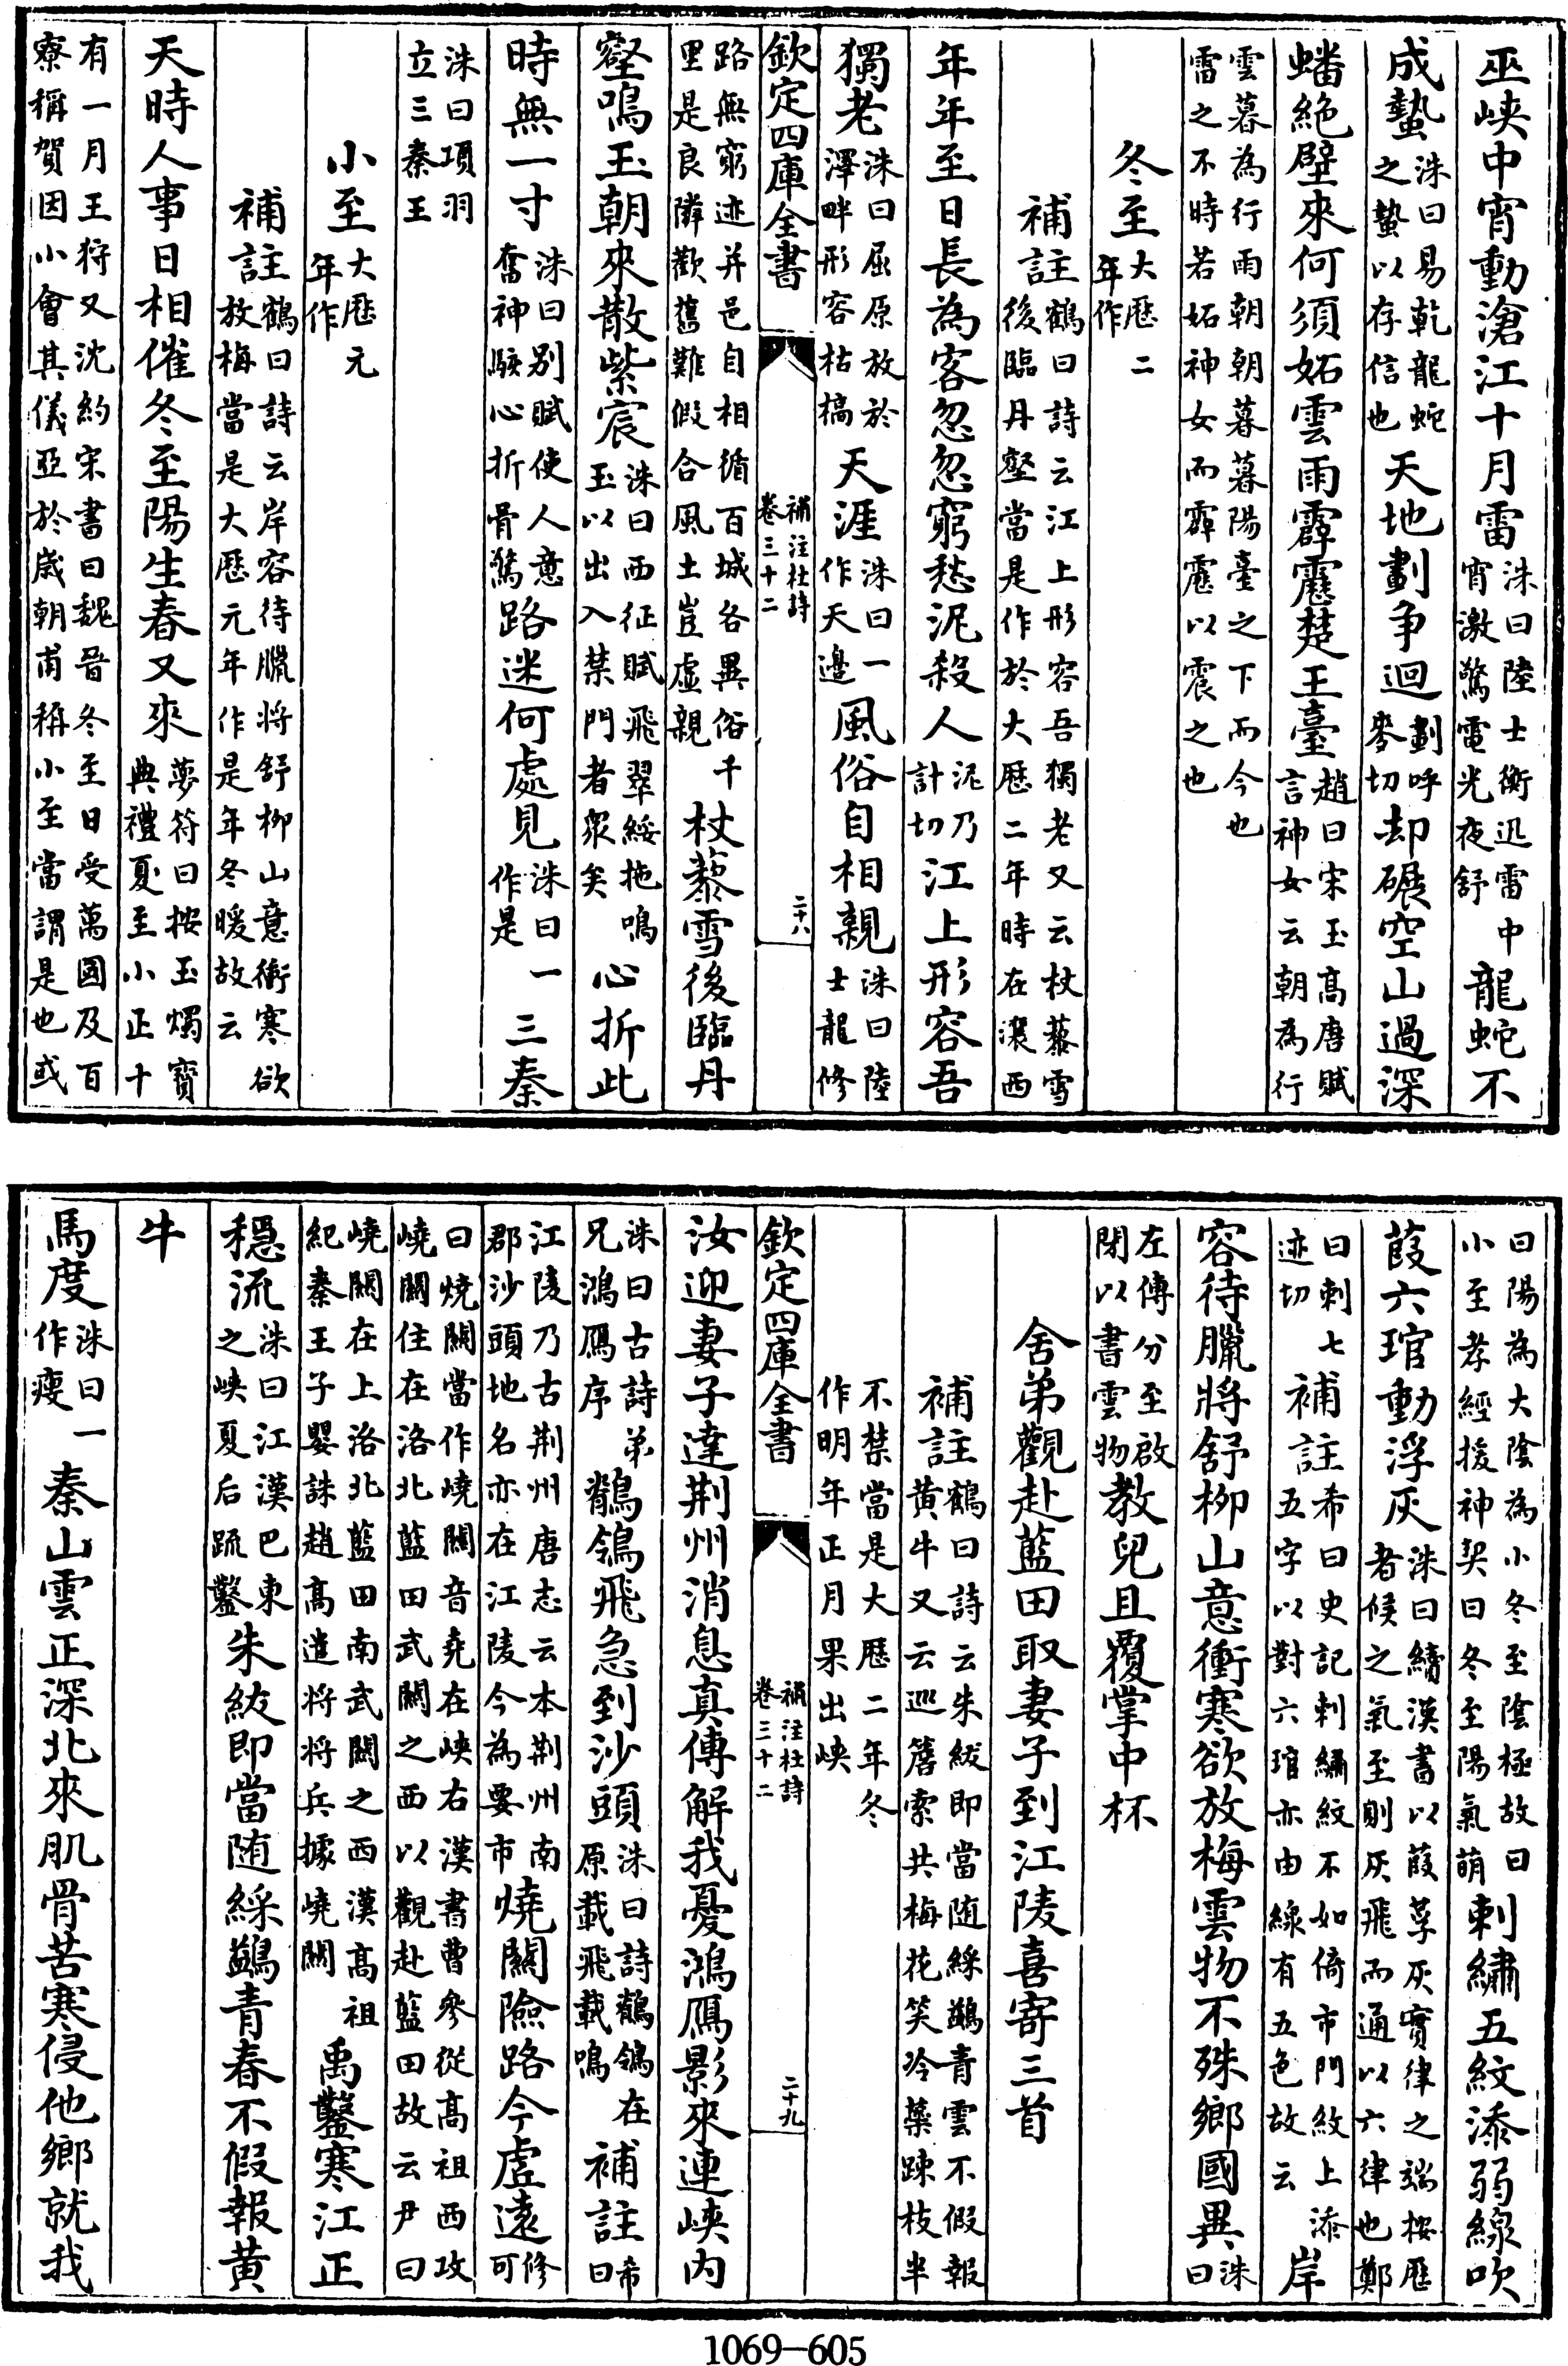 巫峽中宵動滄江十月雷洙曰陸士衡迅雷中宵激驚電光夜舒龍蛇不
成蟄洙曰易乾龍蛇之蟄以存信也天地劃争迴劃呼麥切却碾空山過深
蟠絶壁來何須妬雲雨霹靂楚王臺趙曰宋玉髙唐賦言神女云朝為行
雲暮為行雨朝朝暮暮陽臺之下而今也雷之不時若妬神女而霹靂以震之也
冬至大厯二年作
補註鶴曰詩云江上形容吾獨老又云杖藜雪後臨丹壑當是作於大厯二年時在瀼西
年年至日長為客忽忽窮愁泥殺人泥乃計切江上形容吾
獨老洙曰屈原放於澤畔形容枯槁天涯洙曰一作天邊風俗自相親洙曰陸士龍修
欽定四庫全書 補注杜詩卷三十二 二十八
路無窮迹井邑自相循百城各異俗千里是良隣歡舊難假合風土豈虚親杖藜雪後臨丹
壑鳴玉朝來散紫宸洙曰西征賦飛翠緌拖鳴玉以出入禁門者衆矣心折此
時無一寸洙曰别賦使人意奪神駭心折骨驚路迷何處見洙曰一作是三秦
洙曰項羽立三秦王
小至大厯元年作
補註鶴曰詩云岸容待臘将舒柳山意衝寒欲放梅當是大厯元年作是年冬暖故云
天時人事日相催冬至陽生春又來夢符曰按玉燭寳典禮夏至小正十
有一月王狩又沈約宋書曰魏晉冬至日受萬國及百寮稱賀因小會其儀亞於嵗朝甫稱小至當謂是也或
曰陽為大陰為小冬至陰極故曰小至孝經援神契曰冬至陽氣萌刺繡五紋添弱線吹
葭六琯動浮灰洙曰續漢書以葭莩灰實律之端按厯者候之氣至則灰飛而通以六律也鄭
曰刺七迹切補註希曰史記刺繡紋不如倚市門紋上添五字以對六琯亦由線有五色故云岸
容待臘將舒柳山意衝寒欲放梅雲物不殊鄉國異洙曰
左傳分至啟閉以書雲物教兒且覆掌中杯
舍弟觀赴藍田取妻子到江陵喜寄三首
補註鶴曰詩云朱紱即當随綵鷁青雲不假報黄牛又云巡簷索共梅花笑冷蘂踈枝半
不禁當是大厯二年冬作明年正月果出峽
欽定四庫全書 補注杜詩卷三十二 二十九
汝迎妻子達荆州消息真傳解我憂鴻鴈影來連峽内
洙曰古詩弟兄鴻鴈序鶺鴒飛急到沙頭洙曰詩鶺鴒在原載飛載鳴補註希曰
江陵乃古荆州唐志云本荆州南郡沙頭地名亦在江陵今為要市嶢闗險路今虚遠修可
曰燒闗當作嶢闗音尭在峽右漢書曹參從髙祖西攻嶢闗住在洛北藍田武闗之西以觀赴藍田故云尹曰
嶢闗在上洛北藍田南武闗之西漢髙祖紀秦王子嬰誅趙髙遣将将兵據嶢闗禹鑿寒江正
穩流洙曰江漢巴東之峽夏后疏鑿朱紱即當随綵鷁青春不假報黄
牛
馬度洙曰一作瘦秦山雲正深北來肌骨苦寒侵他鄉就我
1069—605